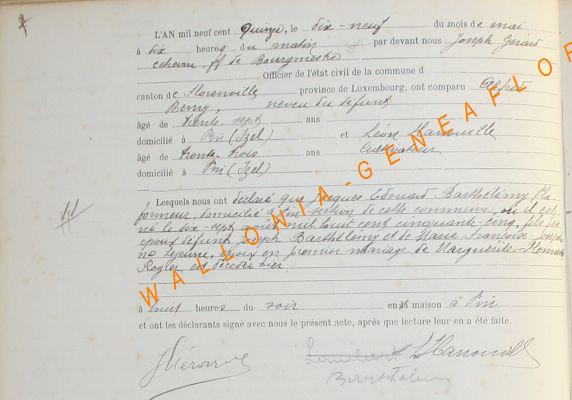 L'AN mil neuf cent quinze, le dix-neuf du mois de mai
à dix heures du matin par devant nous Joseph Gérard
échevin ff de Bourgmestre
Officier de l'état civil de la commune d
canton de Florenville province de Luxembourg, ont comparu Alfred
Berry, neveu du défunt
âgé de trente sept ans
domicilié à Pin (Izel) et Léon Hanouille
âgé de trente trois ans cultivateur
domicilié à Pin (Izel)
Lesquels nous ont déclaré que Jacques Edouard Barthélemy Pla
fonneur, domicilié à Pin section de cette commune, où il est
né le dix-sept août mil huit cent cinquante-cinq, fils des
époux défunts Joseph Barthélemy et de Marie Françoise
Lejeune, époux en premier mariage de Marguerite-
est décédé hier
à huit heures du soir en sa maison à Pin
et ont les déclarants signé avec nous le présent acte, après que lecture leur en a été faite.
JGérard LHanouille
Barthelemy
WALLONIA-GENEAFLOR